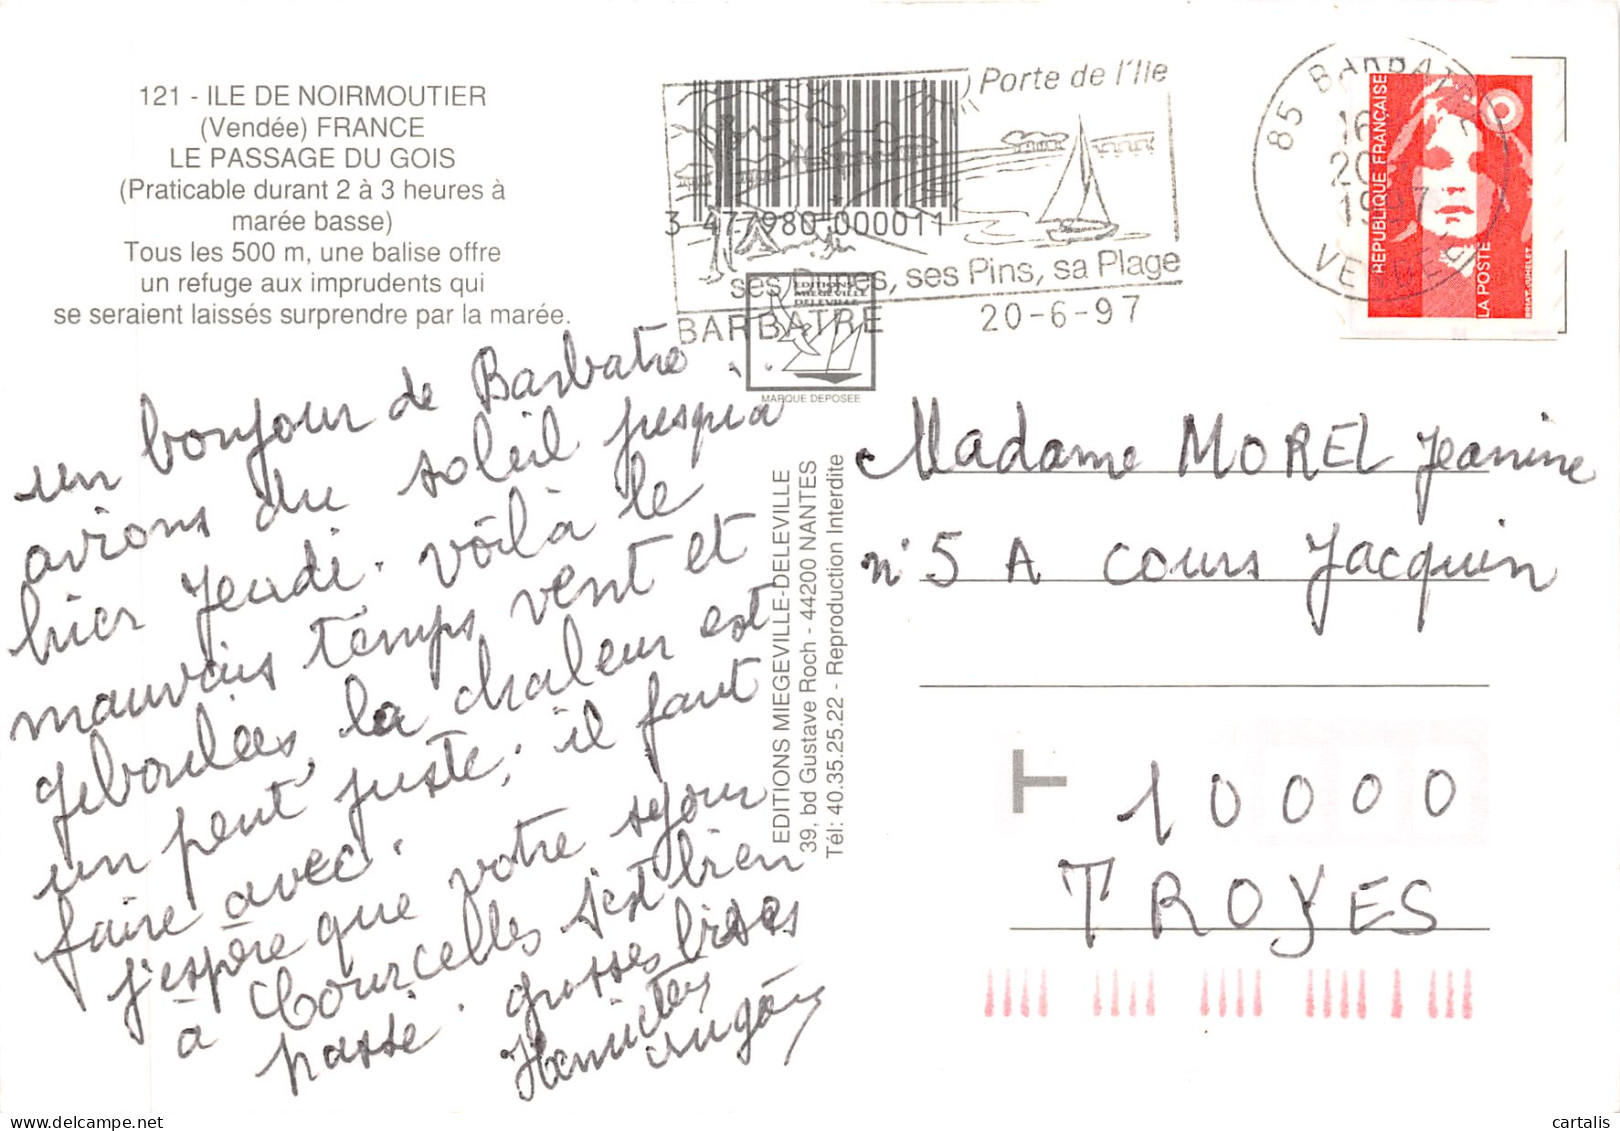 121 - ILE DE NOIRMOUTIER
(Vendée) FRANCE
LE PASSAGE DU GOIS
(Praticable durant 2 à 3 heures à
marée basse)
Tous les 500 m, une balise offre
un refuge aux imprudents qui
se seraient laissés surprendre par la marée.
Porte de l'Ile
3 477980 000011
ses Dunes, ses Pins, sa Plage
BARBATRE
20-6-97
EDITIONS
MIEGEVILLE
DELEVILLE
MARQUE DEPOSEE
85 BARBATRE
16
20
1997
VENDEE
REPUBLIQUE FRANÇAISE
LA POSTE
BRIAT-JUMELET
un bonjour de Barbatre
avions du soleil jusqu'a
hier Jeudi. voilà le
mauvais temps vent et
giboulées, la chaleur est
un peut juste; il faut
faire avec.
j'espère que votre sejour
à Courcelles s'est bien
passé. grosses bises
EDITIONS MIEGEVILLE-DELEVILLE
39, bd Gustave Roch - 44200 NANTES
Tél: 40.35.25.22 - Reproduction Interdite
Madame MOREL Jeanine
n° 5 A cours Jacquin
T
10000
TROYES
cartalis.com